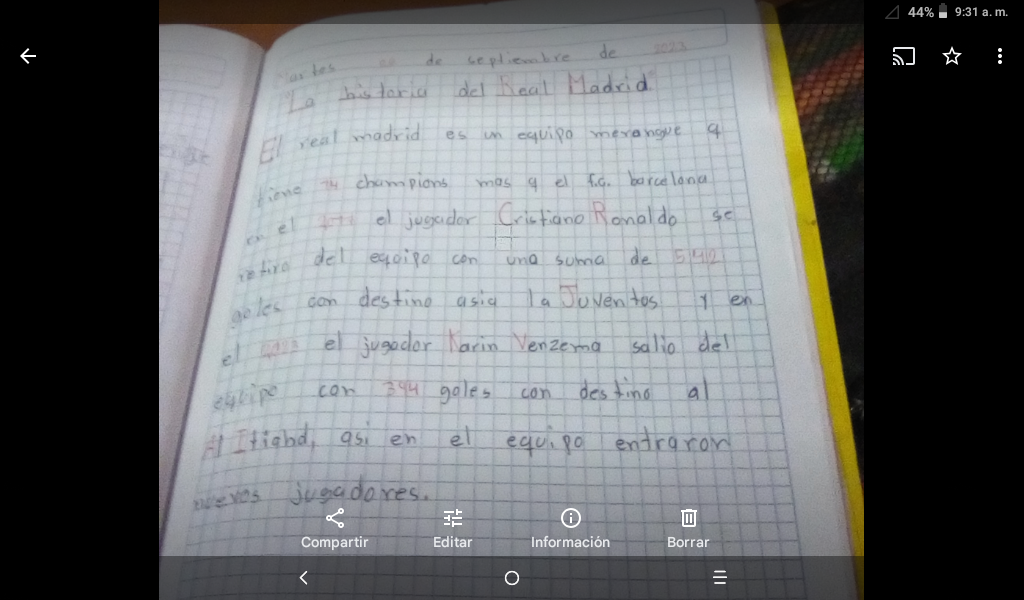 44% 9:31 a. m.
Martes de septiembre de 2023
La historia del Real Madrid
El real madrid es un equipo merangue q
tiene 14 champions mas q el f.c. barcelona
en el el jugador Cristiano Ronaldo se
retiro del eqoipo con una soma de 542
goles con destino asia la Juventos y en
el 2023 el jugador Karin Venzema salio del
equipo con 394 goles con destino al
Al Itiahd, asi en el equipo entraron
nuevos jugadores.
Compartir Editar Información Borrar